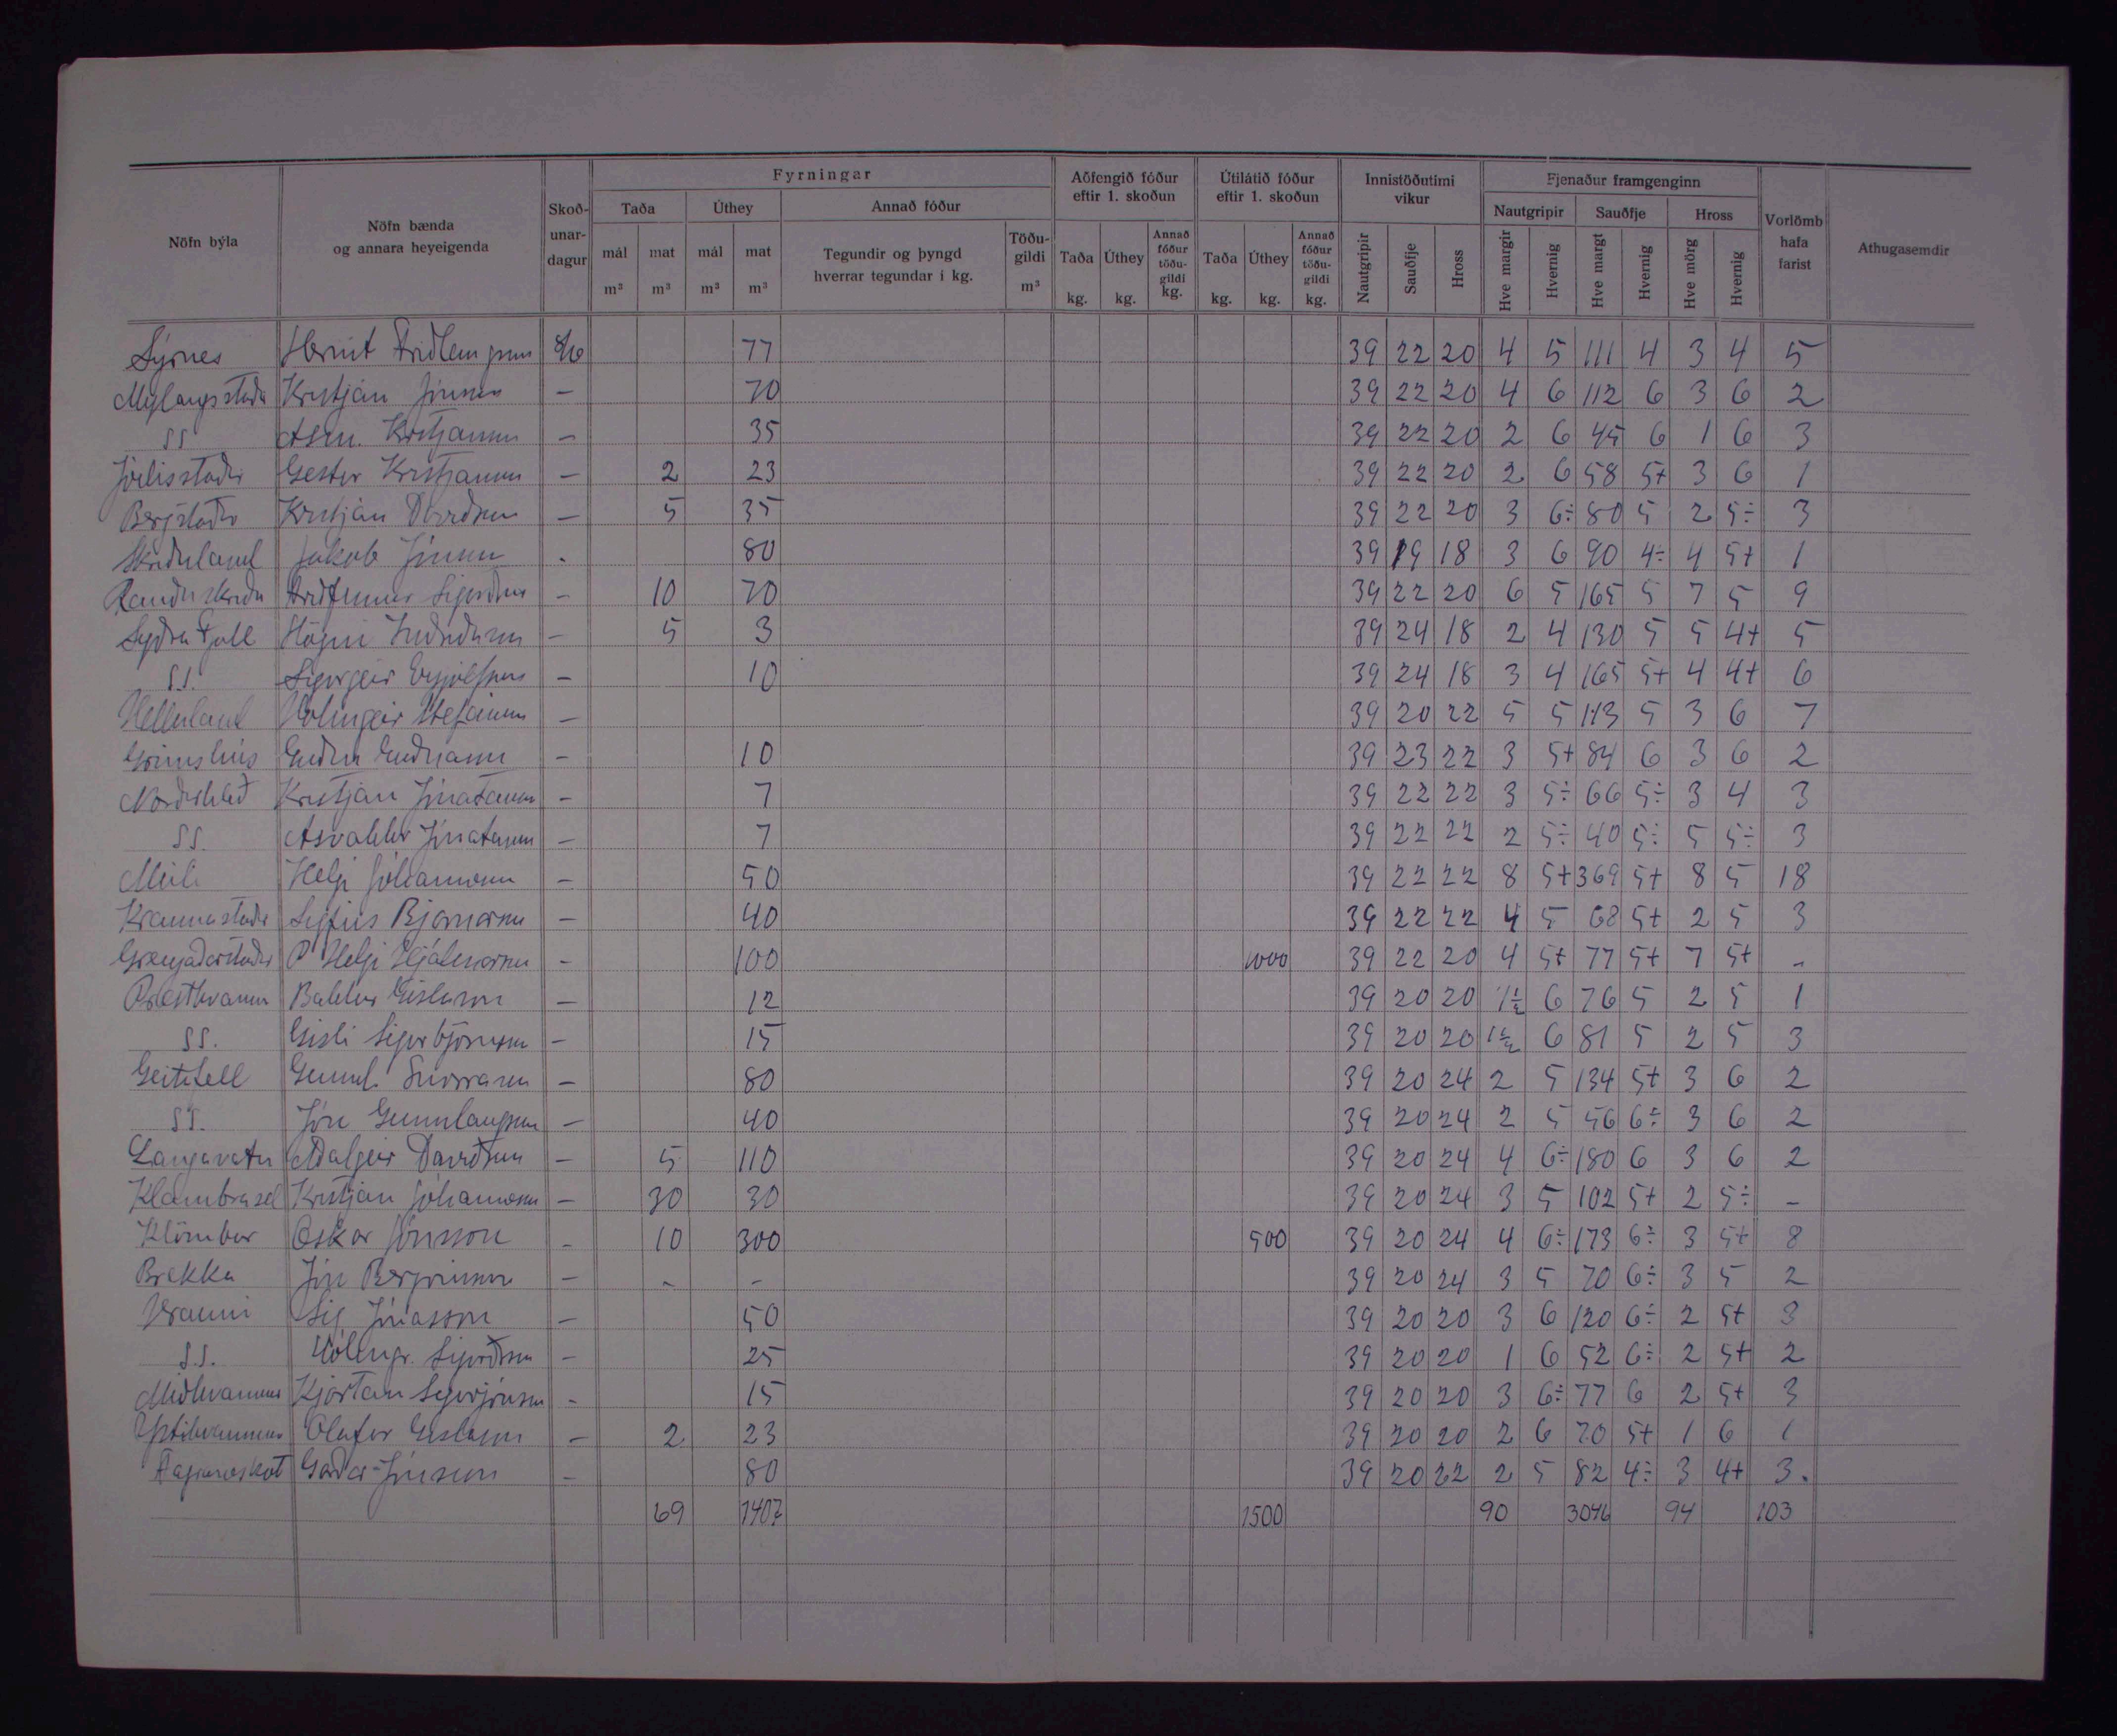 Fyrningar
Aðfengið fóður eftir 1. skoðun
Útilátið fóður eftir 1. skoðun
Innistöðutimi vikur
Fjenaður framgenginn
Nöfn býla
Nöfn bænda og annara heyeigenda
Skoð-unar-dagur
Taða
Úthey
Annað fóður
Nautgripir
Sauðfje
Hross
Vorlömb hafa farist
Athugasemdir
mál m³ mat m³ mál m³ mat m³
Tegundir og þyngd hverrar tegundar í kg.
Töðu-gildi m³
Taða kg. Úthey kg. Annað fóður töðu-gildi kg.
Taða kg. Úthey kg. Annað fóður töðu-gildi kg.
Nautgripir Sauðfje Hross
Hve margir Hvernig Hve margt Hvernig Hve mörg Hvernig
Sýrnes 77 39 22 20 4 5 111 4 3 4 5
Mýlaugsstaðir Kristján Jónsson — 70 39 22 20 4 6 112 6 3 6 2
SS Ásm. Kristjánsson — 35 39 22 20 2 6 45 6 1 6 3
Jódísstaðir Gestur Kristjánsson — 2 23 39 22 20 2 6 58 5+ 3 6 1
Bergstaðir Kristján Davíðsson — 5 35 39 22 20 3 6÷ 80 5 2 5÷ 3
Skriðuland Jakob Jónsson - 80 39 19 18 3 6 90 4÷ 4 5+ 1
Rauðuskriða Friðfinnur Sigurðsson - 10 70 39 22 20 6 5 165 5 7 5 9
Syðra Fjall Högni Indriðason — 5 3 39 24 18 2 4 130 5 5 4+ 5
SS. Sigurgeir Eyjólfsson — 10 39 24 18 3 4 165 5+ 4 4+ 6
Helluland Hólmgeir Stefánsson — 39 20 22 5 5 143 5 3 6 7
Grímshús — 10 39 23 22 3 5+ 84 6 3 6 2
Norðurhlíð Kristján Jónatansson - 7 39 22 22 3 5÷ 66 5÷ 3 4 3
SS. Ásvaldur Jónatansson — 7 39 22 22 2 5÷ 40 5÷ 5 5÷ 3
Múli Helgi Jóhannesson — 50 39 22 22 8 5+ 369 5+ 8 5 18
Kraunastaðir Sigfús Bjarnarson — 40 39 22 22 4 5 68 5+ 2 5 3
Grenjaðarstaður P Helgi Hjálmarsson - 100 1000 39 22 20 4 5+ 77 5+ 7 5+ -
Presthvammur Baldur Gíslason — 12 39 20 20 1½ 6 76 5 2 5 1
SS. Gísli Sigurbjörnsson — 15 39 20 20 1½ 6 81 5 2 5 3
Geitafell Gunnl. Snorrason — 80 39 20 24 2 5 134 5+ 3 6 2
SS. Jón Gunnlaugsson — 40 39 20 24 2 5 56 6÷ 3 6 2
Langavatn Aðalgeir Davíðsson — 5 110 39 20 24 4 6÷ 180 6 3 6 2
Klambrasel Kristján Jóhannesson — 30 30 39 20 24 3 5 102 5+ 2 5÷ -
Klömbur Óskar Jónsson - 10 300 500 39 20 24 4 6÷ 173 6÷ 3 5+ 8
Brekka Jón Bergvinsson — - - 39 20 24 3 5 70 6÷ 3 5 2
Hraun Sig Jónasson — 50 39 20 20 3 6 120 6÷ 2 5+ 3
S.S. Hólmgr. Sigurðsson - 25 39 20 20 1 6 52 6÷ 2 5+ 2
Miðhvammur Kjartan Sigurjónsson - 15 39 20 20 3 6÷ 77 6 2 5+ 3
Ystihvammur Ólafur Gíslason — 2 23 39 20 20 2 6 70 5+ 1 6 1
Fagraneskot Garðar Jónsson - 80 39 20 22 2 5 82 4÷ 3 4+ 3.
69 1407 1500 90 3046 94 103